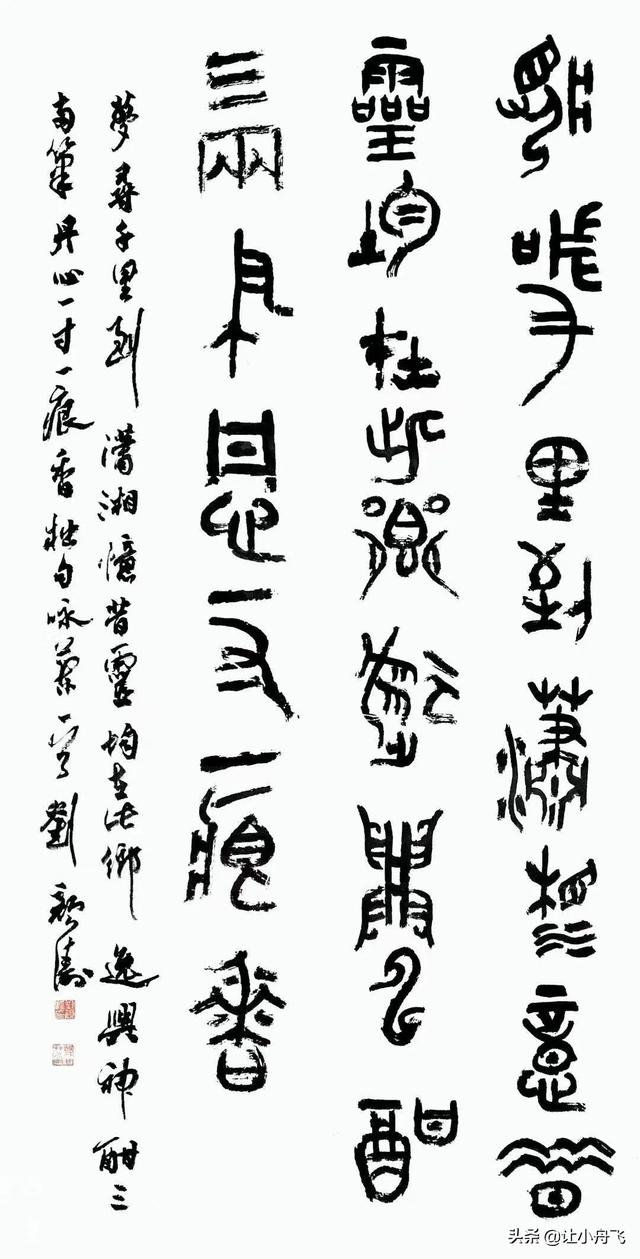 夢尋千里到瀟湘憶昔
靈均在此鄉逸興神酣
三兩筆丹心一寸一痕香
夢尋千里到瀟湘憶昔靈均在此鄉逸興神酣三
兩筆丹心一寸一痕香拙句咏蘭一首劉顏濤
头条 @让小舟飞